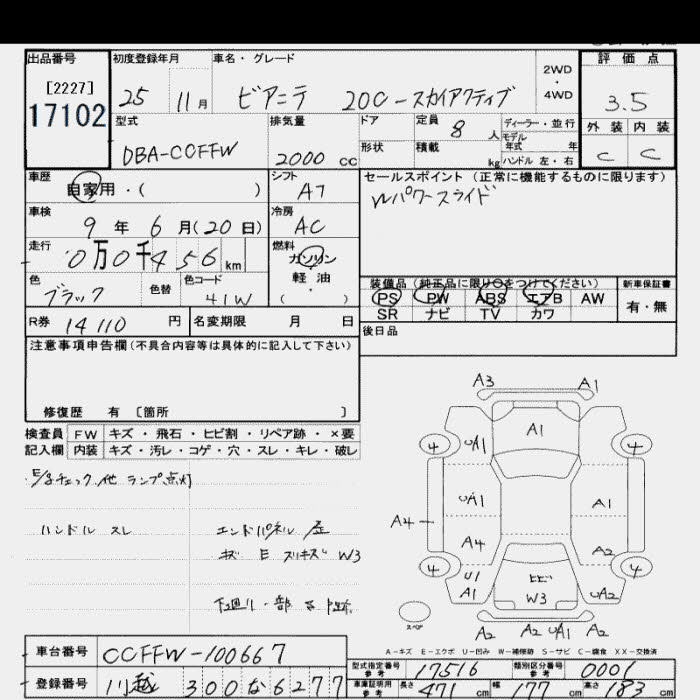 出品番号 初度登録年月 車名・グレード 評価点
[2227]
17102
25 11月 ビアンテ 20C-スカイアクティブ 2WD・4WD 3.5
型式 排気量 ドア 定員 8人 ディーラー・並行 外装 内装
DBA-CCFFW 2000 cc 形状 積載 kg モデル年式 年 ハンドル 左・右 C C
車歴 自家用・( ) シフト A7 セールスポイント(正常に機能するものに限ります)
Wパワースライド
車検 9年 6月(20日) 冷房 AC
走行 0万0千456km 燃料 ガソリン 軽油・( )
色 ブラック 色替 色コード 41W
装備品(純正品に限り○をつけてください) 新車保証書
PS PW ABS エアB AW 有・無
SR ナビ TV カワ
R券 14110円 名変期限 月 日 後日品
注意事項申告欄(不具合内容等は具体的に記入して下さい)
修復歴 有 [箇所 ]
検査員 FW キズ・飛石・ヒビ割・リペア跡・×要
記入欄 内装 キズ・汚レ・コゲ・穴・スレ・キレ・破レ
E/gチェック他 ランプ点灯
ハンドル スレ
エンドパネル
キズ E スリキズ W3
A3 A1
A1
4 UA1 4
UA1 A1
A4 A4 A2
4 U1 A1 ヒビ W3 UA2 4
スペア A2 A2 UA1 A2
A-キズ E-エクボ U-凹み W-補修跡 S-サビ C-腐食 XX-交換済
車台番号 CCFFW-100667
登録番号 川越 300 な 6277
型式指定番号 参考 17516 類別区分番号 参考 0001
車庫証明用 参考 長さ 471cm 幅 177cm 高さ 183cm